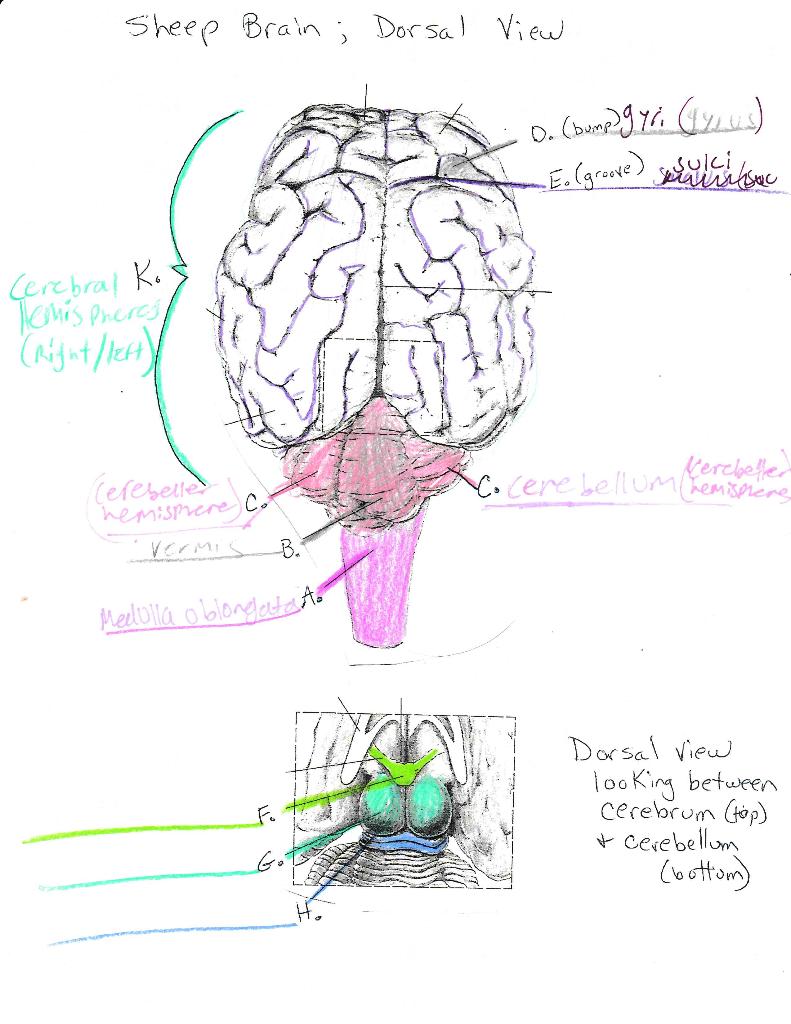 Sheep Brain ; Dorsal View
D. (bump) gyri (gyrus)
E. (groove) sulci
K.
Cerebral
Hemispheres
(Right/left)
(Cerebeller
hemisphere)
C.
C. cerebellum (Cerebeller
hemisphere)
vermis B.
Medulla oblongata A.
F.
G.
H.
Dorsal view
looking between
cerebrum (top)
+ cerebellum
(bottom)